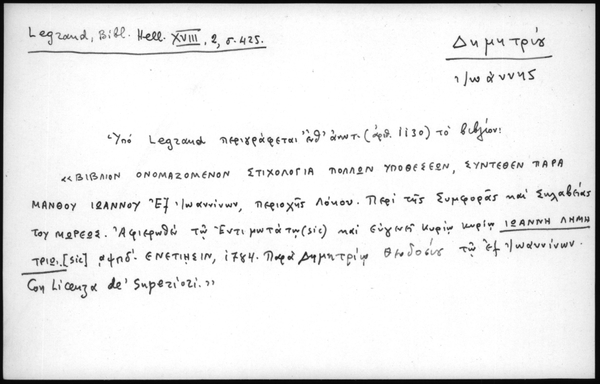 Legrand, Bibl. Hell. XVIII, 2, σ. 425.
Δημητρίου
Ἰωάννης
Ὑπό Legrand περιγράφεται ἐνθ' ἀνωτ. (ἀριθ. 1130) τό βιβλίον:
«ΒΙΒΛΙΟΝ ΟΝΟΜΑΖΟΜΕΝΟΝ ΣΤΙΧΟΛΟΓΙΑ ΠΟΛΛΩΝ ΥΠΟΘΕΣΕΩΝ, ΣΥΝΤΕΘΕΝ ΠΑΡΑ
ΜΑΝΘΟΥ ΙΩΑΝΝΟΥ Ἐξ Ἰωαννίνων, περιοχῆς Λόκου. Περί τῆς Συμφορᾶς καί Σκλαβείας
του ΜΩΡΕΩΣ. Ἀφιερωθέν τῷ Ἐντιμωτάτῳ (sic) καί εὐγενεῖ κυρίῳ κυρίῳ ΙΩΑΝΝΗ ΛΗΜΗ
ΤΡΙΩΙ. [sic] ͵αψπδ'. ΕΝΕΤΙΗΣΙΝ, 1784. Παρά Δημητρίῳ Θεοδοσίου τῷ ἐξ Ἰωαννίνων.
Con Licenza de' Superiori.»